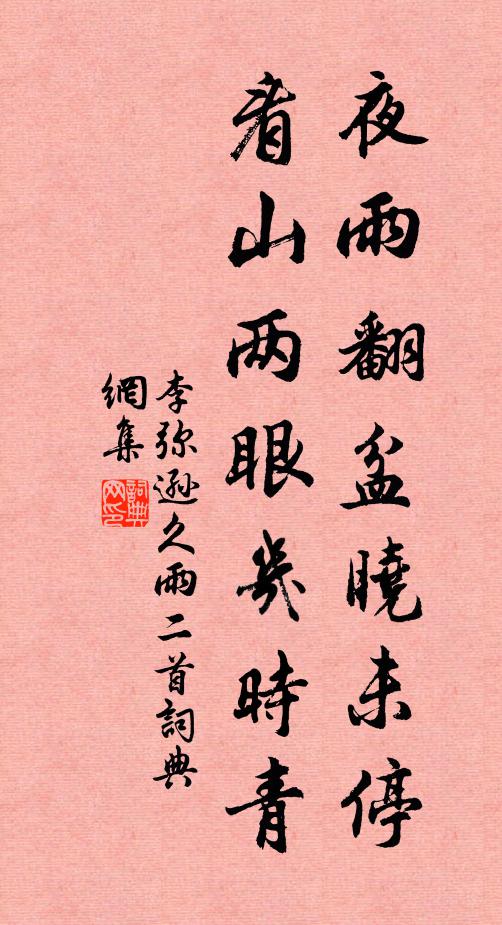 夜雨翻盆曉未停
看山两眼幾時青
李弥遜久雨二首詞典
網集
詞典
网印